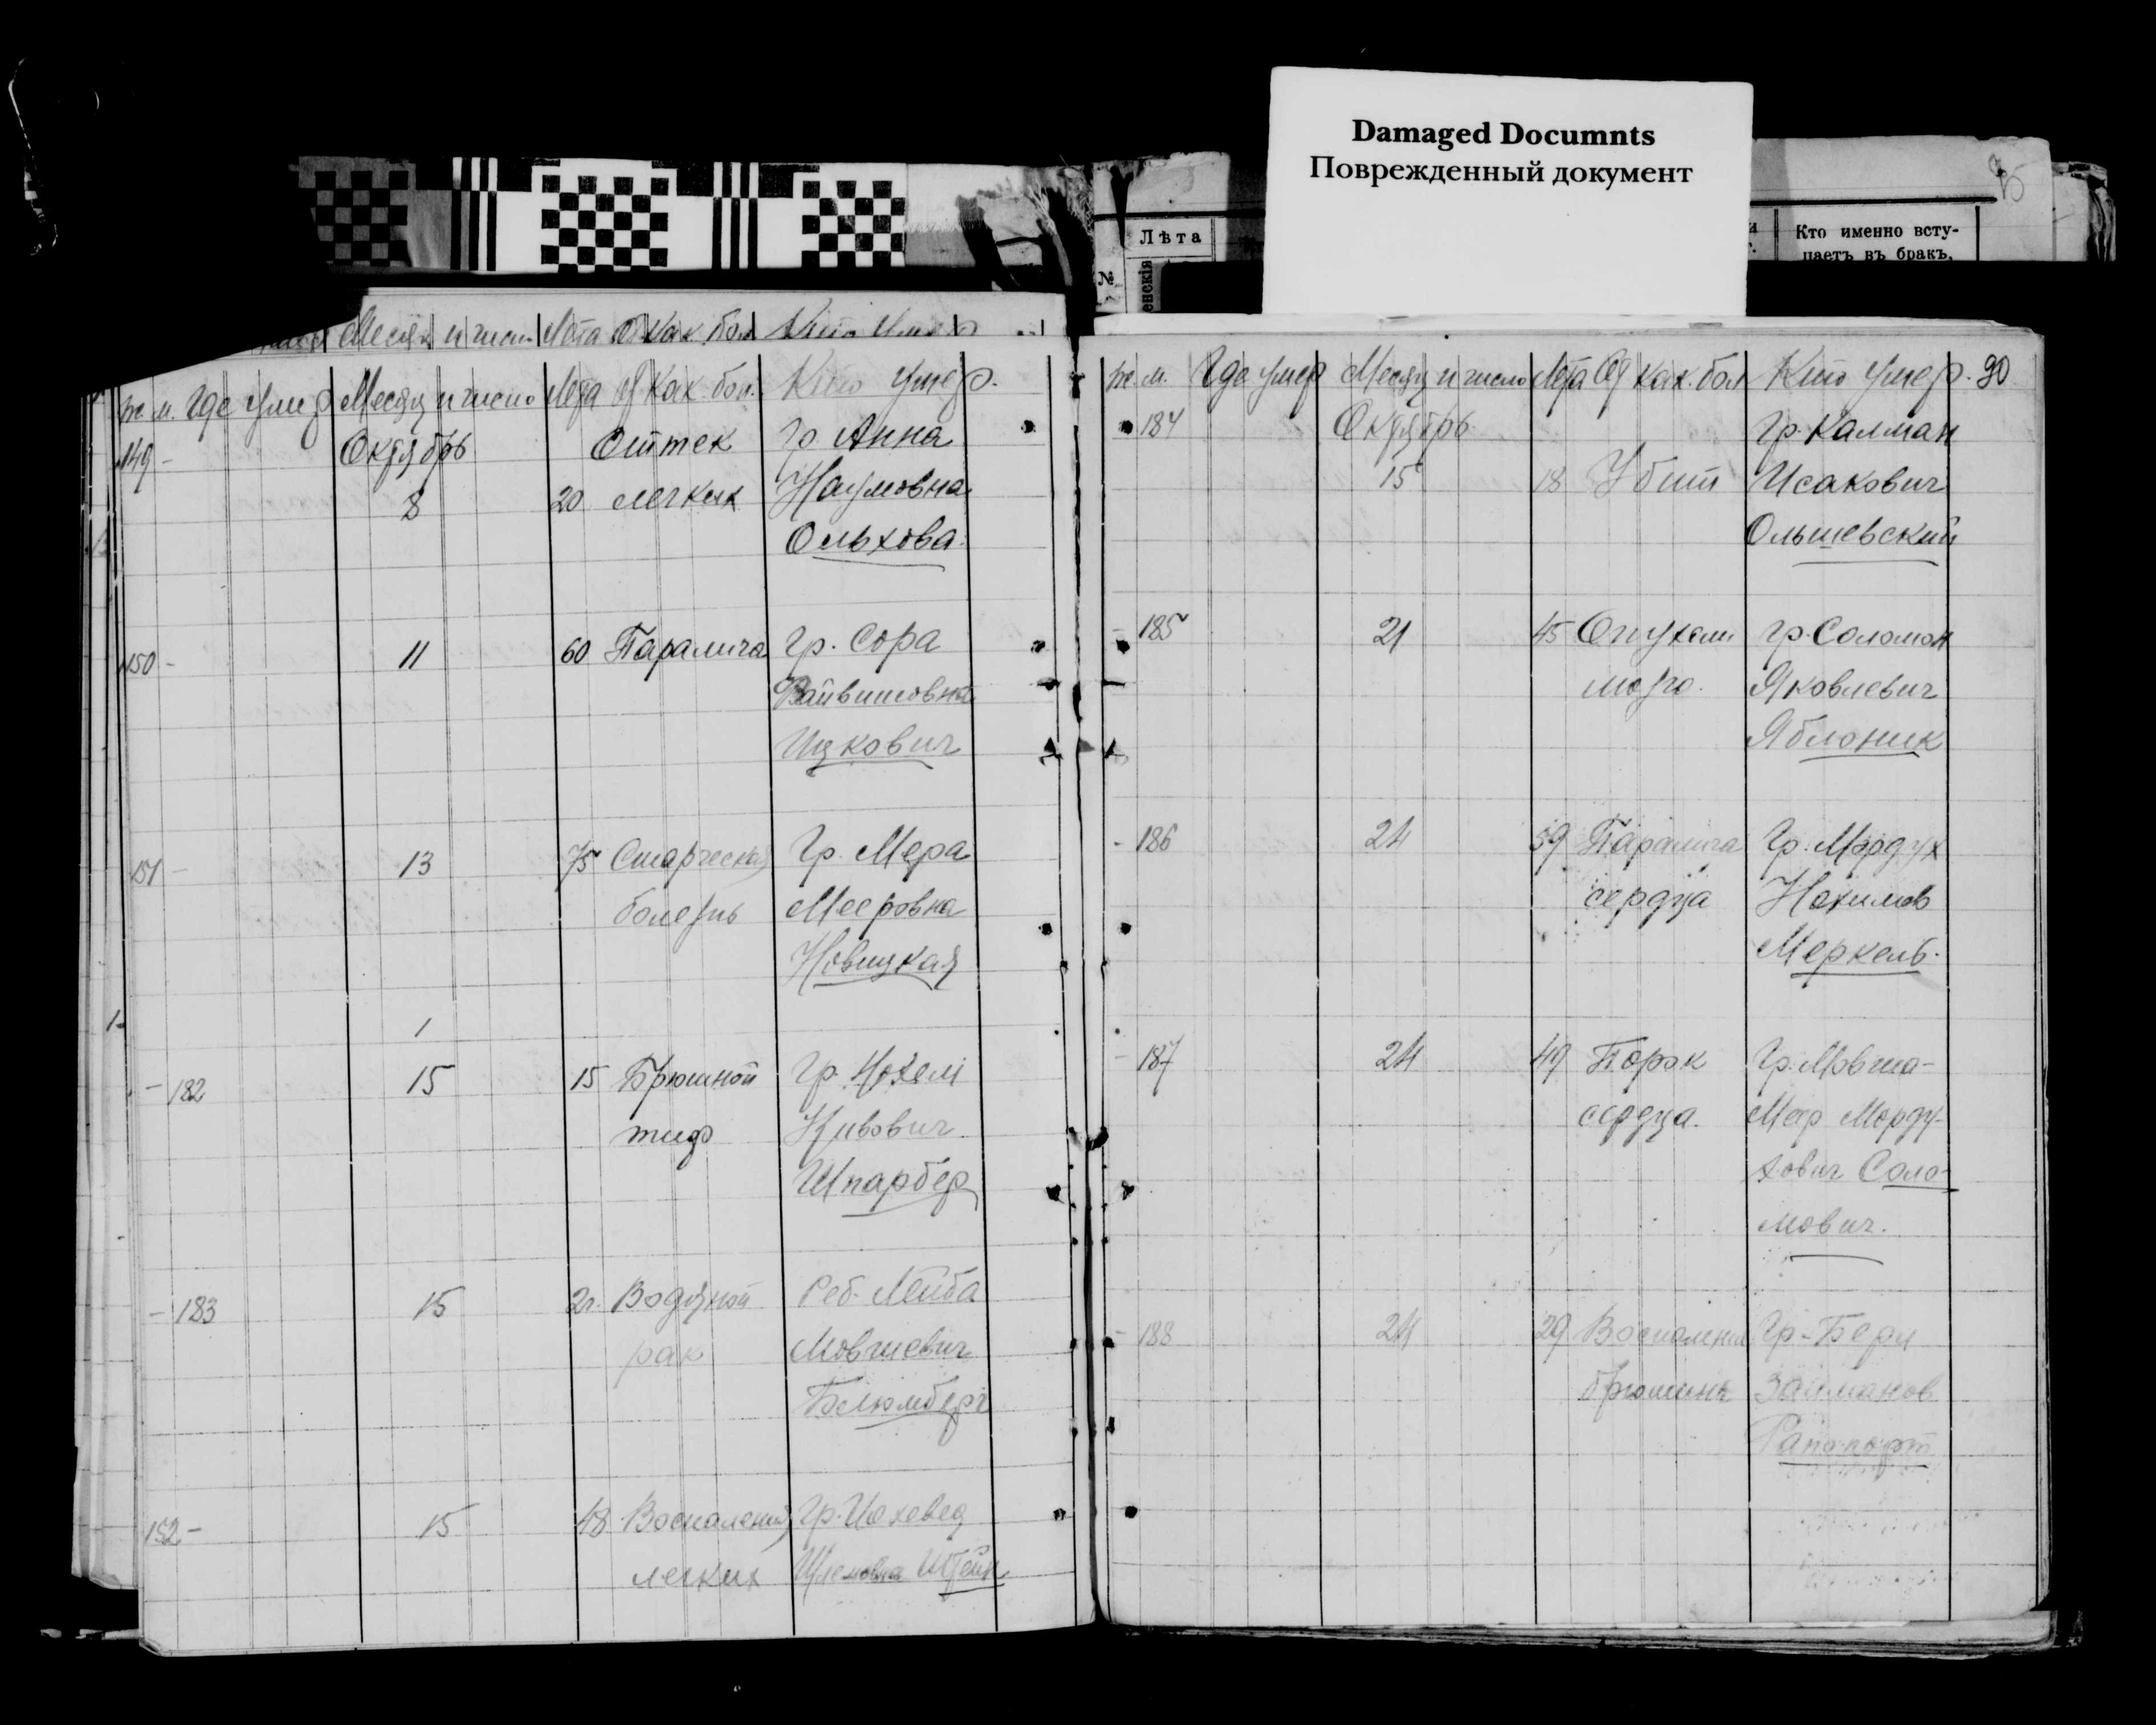 Damaged Documnts
Поврежденный документ
Лѣта
№
Кто именно всту-
паетъ въ бракъ,
Месяц и число Лета От как. бол. Кто умер
ж. м. Где умер Месяц и число Лета От как. бол. Кто умер.
149 - Октябрь Оттек гр. Анна
8 20 легких Наумовна
Ольхова.
150 - 11 60 Паралича Гр. Сора
Ицкович
151 - 13 75 Старческая Гр. Мера
болезнь Мееровна
Новицкая
1
- 182 15 15 Брюшной Гр. Нохем
тиф
Шпарбер
- 183 15 2г. Водяной Реб. Лейба
рак Мовшевич
Блюмберг
152 - 15 48 Воспаления Гр. Иохевед
легких Шлемовна Штейн
ж. м. Где умер Месяц и число Лета От как. бол Кто умер. 90
184 Октябрь Гр. Калман
15 18 Убит Исакович
Ольшевский
- 185 21 45 Опухоли гр. Соломон
мозга. Яковлевич
Яблоник
- 186 24 59 Паралича Гр. Мордух
сердца Нохимов
Меркель.
- 187 24 49 Порок Гр. Мовша-
сердца. Меер Морду-
хович Соло-
мович.
- 188 24 29 Воспаления Гр. Берл
брюшины Залманов
Рапопорт